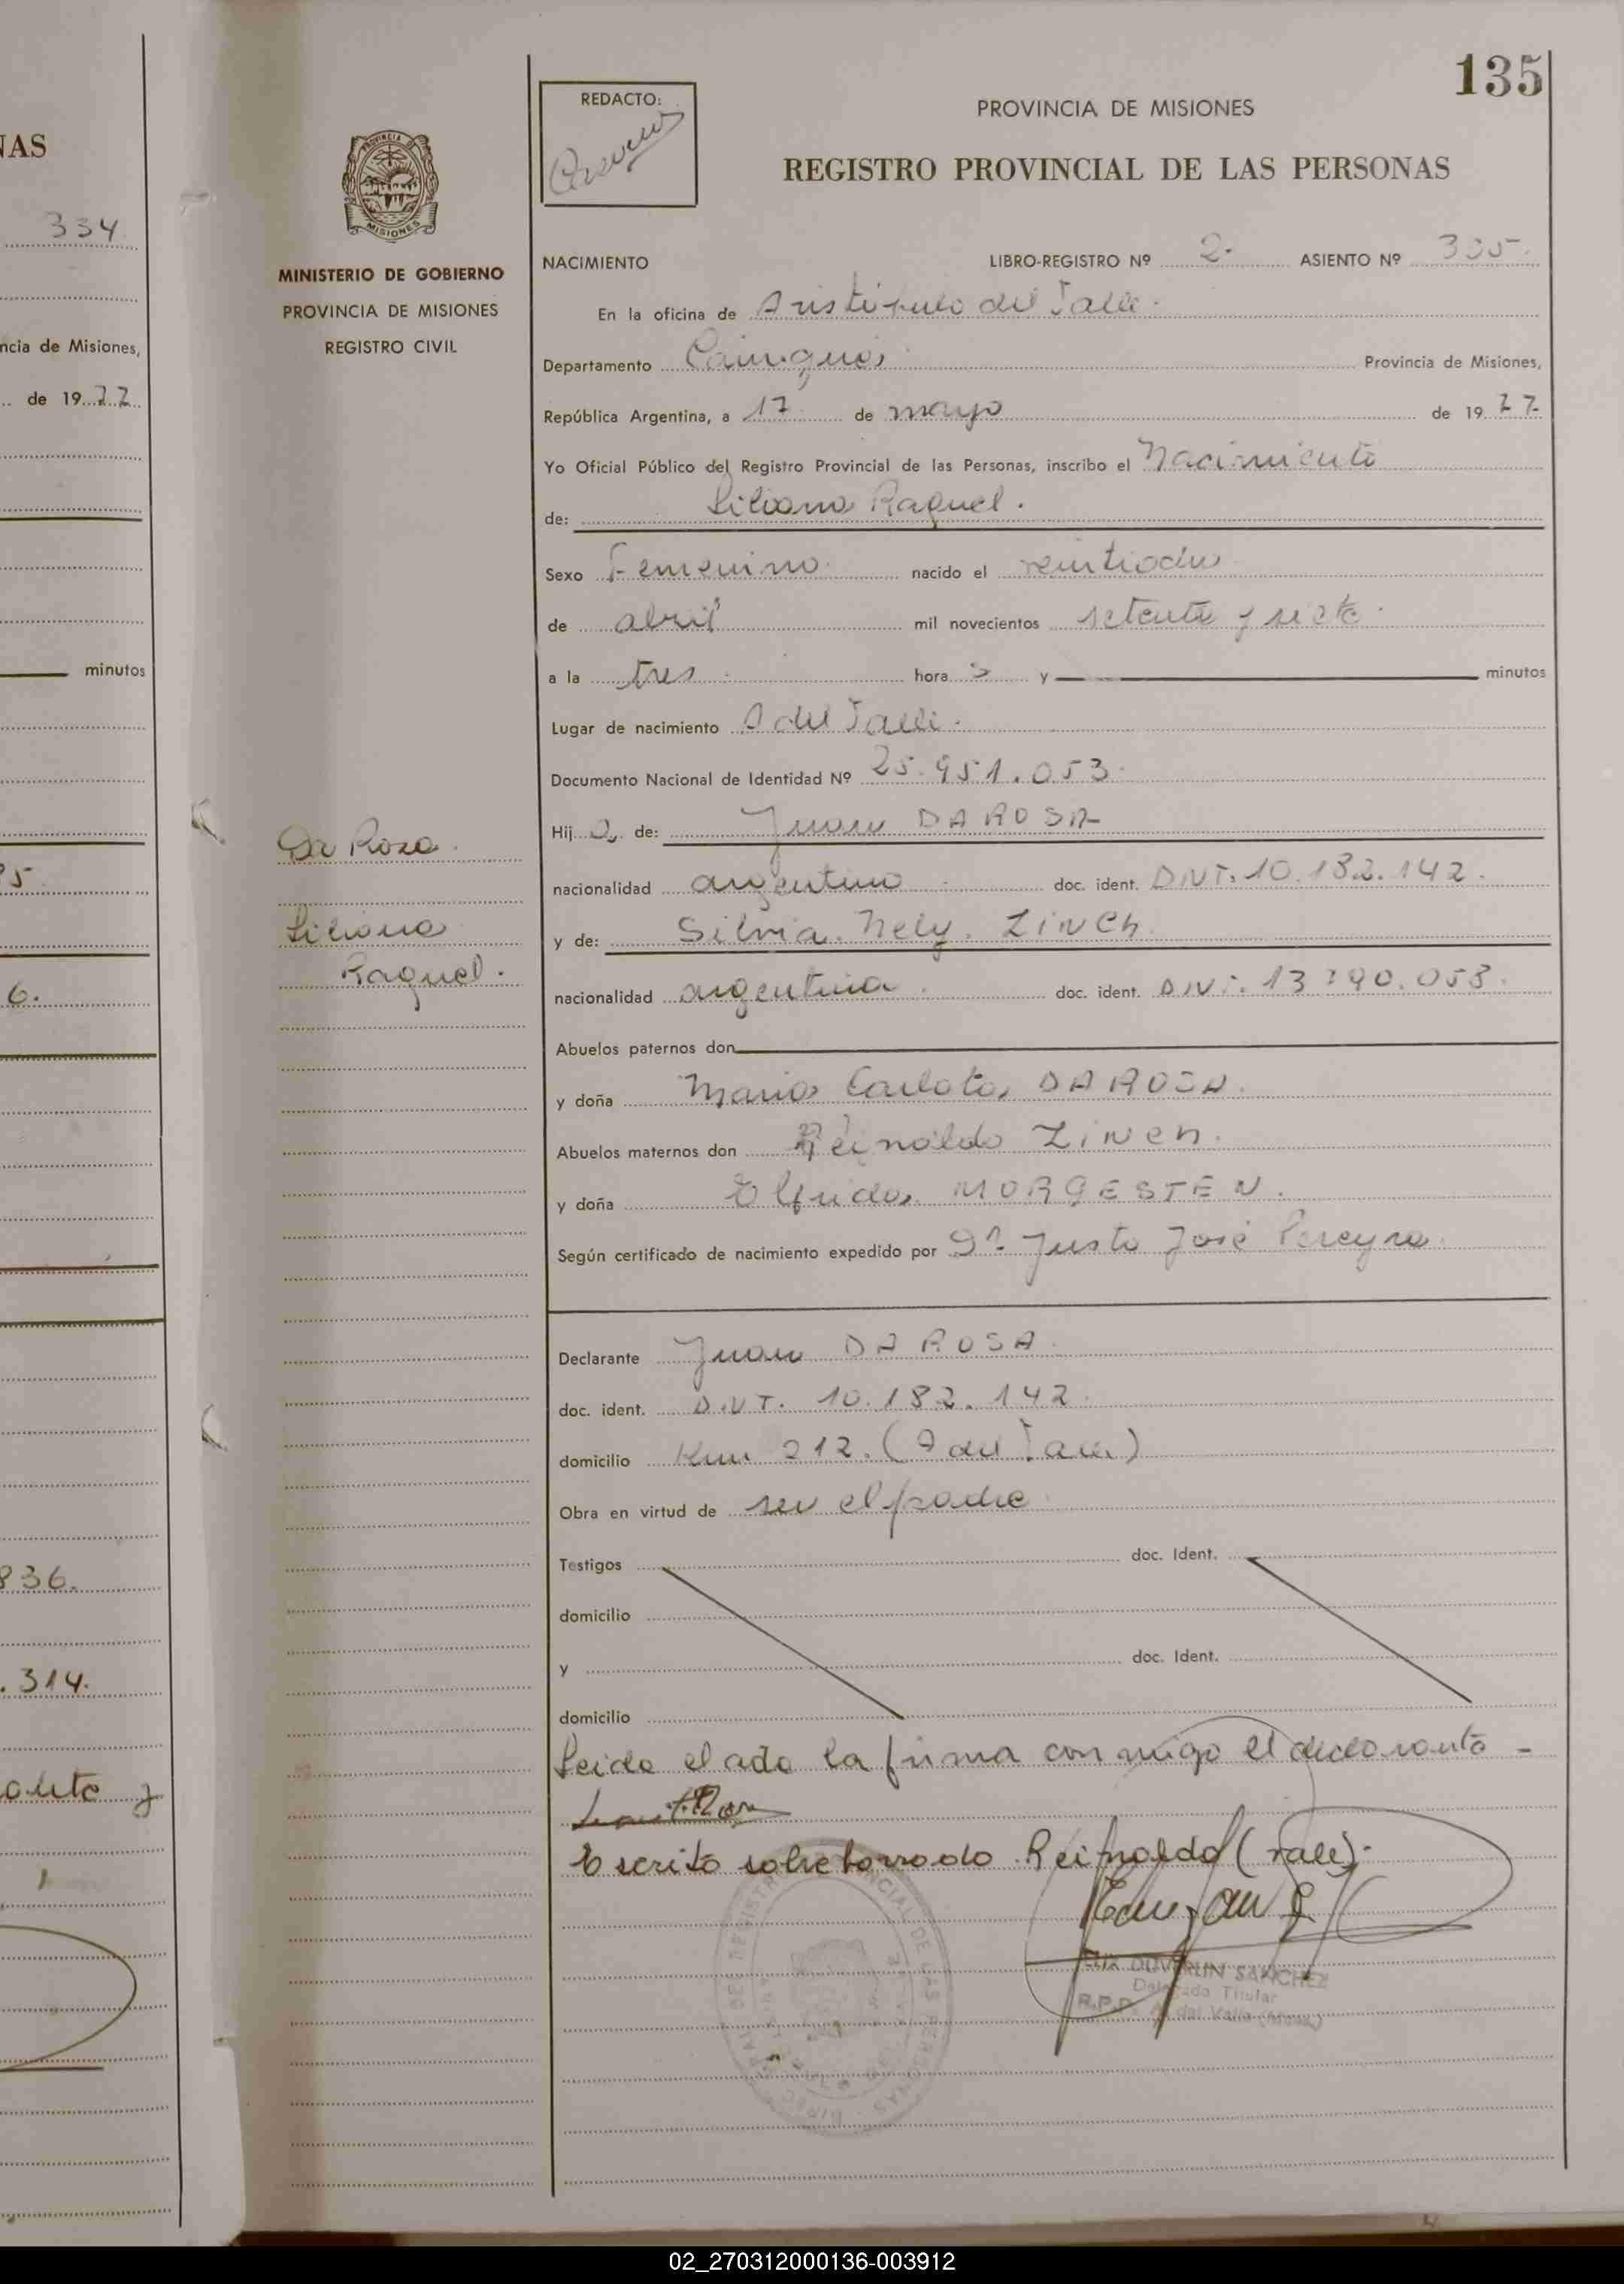 NAS
334.
ncia de Misiones,
de 19 77
minutos
6.
836.
.314.
MINISTERIO DE GOBIERNO
PROVINCIA DE MISIONES
REGISTRO CIVIL
Da Rosa.
Liliana
Raquel.
135
REDACTO:
PROVINCIA DE MISIONES
REGISTRO PROVINCIAL DE LAS PERSONAS
NACIMIENTO LIBRO-REGISTRO Nº 2- ASIENTO Nº 335-
En la oficina de Aristóbulo del Valle.
Departamento Cainguás Provincia de Misiones,
República Argentina, a 17 de mayo de 19 77-
Yo Oficial Público del Registro Provincial de las Personas, inscribo el Nacimiento
de: Liliana Raquel.
Sexo Femenino nacido el veintiodu
de abril mil novecientos setenta y siete.
a la tres hora s y minutos
Lugar de nacimiento A del Valle.
Documento Nacional de Identidad Nº 25.951.053
Hij a de: Juan DA ROSA
nacionalidad argentino doc. ident. DNI. 10.182.142.
y de: Silvia Nely ZINCH.
nacionalidad argentina. doc. ident. DNI. 13 790.053.
Abuelos paternos don
y doña Maria Carlota DA ROSA.
Abuelos maternos don Reinaldo ZINCH.
y doña Elfrida MORGESTEN.
Según certificado de nacimiento expedido por Dr. Justo José Pereyra
Declarante Juan DA ROSA.
doc. ident. D.N.I. 10.182.142.
domicilio Km 212. (A del Valle)
Obra en virtud de ser el padre
Testigos doc. Ident.
domicilio
y doc. Ident.
domicilio
Leida el acta la firma con migo el declarante -
Escrito sobre borrado Reinaldo (vale).-
DUVERLIN SANCHEZ
Delegado Titular
R.P.P. A. del Valle (Mnes)
02_270312000136-003912